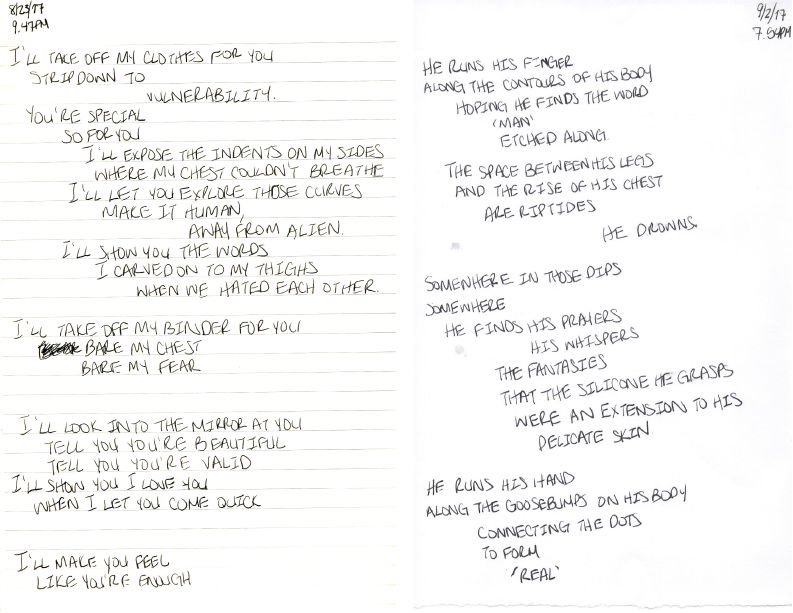 8/23/17
9.47PM
I'LL TAKE OFF MY CLOTHES FOR YOU
STRIP DOWN TO
VULNERABILITY.
YOU'RE SPECIAL
SO FOR YOU
I'LL EXPOSE THE INDENTS ON MY SIDES
WHERE MY CHEST COULDN'T BREATHE
I'LL LET YOU EXPLORE THOSE CURVES
MAKE IT HUMAN,
AWAY FROM ALIEN.
I'LL SHOW YOU THE WORDS
I CARVED ON TO MY THIGHS
WHEN WE HATED EACH OTHER.
I'LL TAKE OFF MY BINDER FOR YOU
BARE MY CHEST
BARE MY FEAR
I'LL LOOK INTO THE MIRROR AT YOU
TELL YOU YOU'RE BEAUTIFUL
TELL YOU YOU'RE VALID
I'LL SHOW YOU I LOVE YOU
WHEN I LET YOU COME QUICK
I'LL MAKE YOU FEEL
LIKE YOU'RE ENOUGH
9/2/17
7.54PM
HE RUNS HIS FINGER
ALONG THE CONTOURS OF HIS BODY
HOPING HE FINDS THE WORD
'MAN'
ETCHED ALONG.
THE SPACE BETWEEN HIS LEGS
AND THE RISE OF HIS CHEST
ARE RIPTIDES
HE DROWNS.
SOMEWHERE IN THOSE DIPS
SOMEWHERE
HE FINDS HIS PRAYERS
HIS WHISPERS
THE FANTASIES
THAT THE SILICONE HE GRASPS
WERE AN EXTENSION TO HIS
DELICATE SKIN.
HE RUNS HIS HAND
ALONG THE GOOSEBUMPS ON HIS BODY
CONNECTING THE DOTS
TO FORM
'REAL'